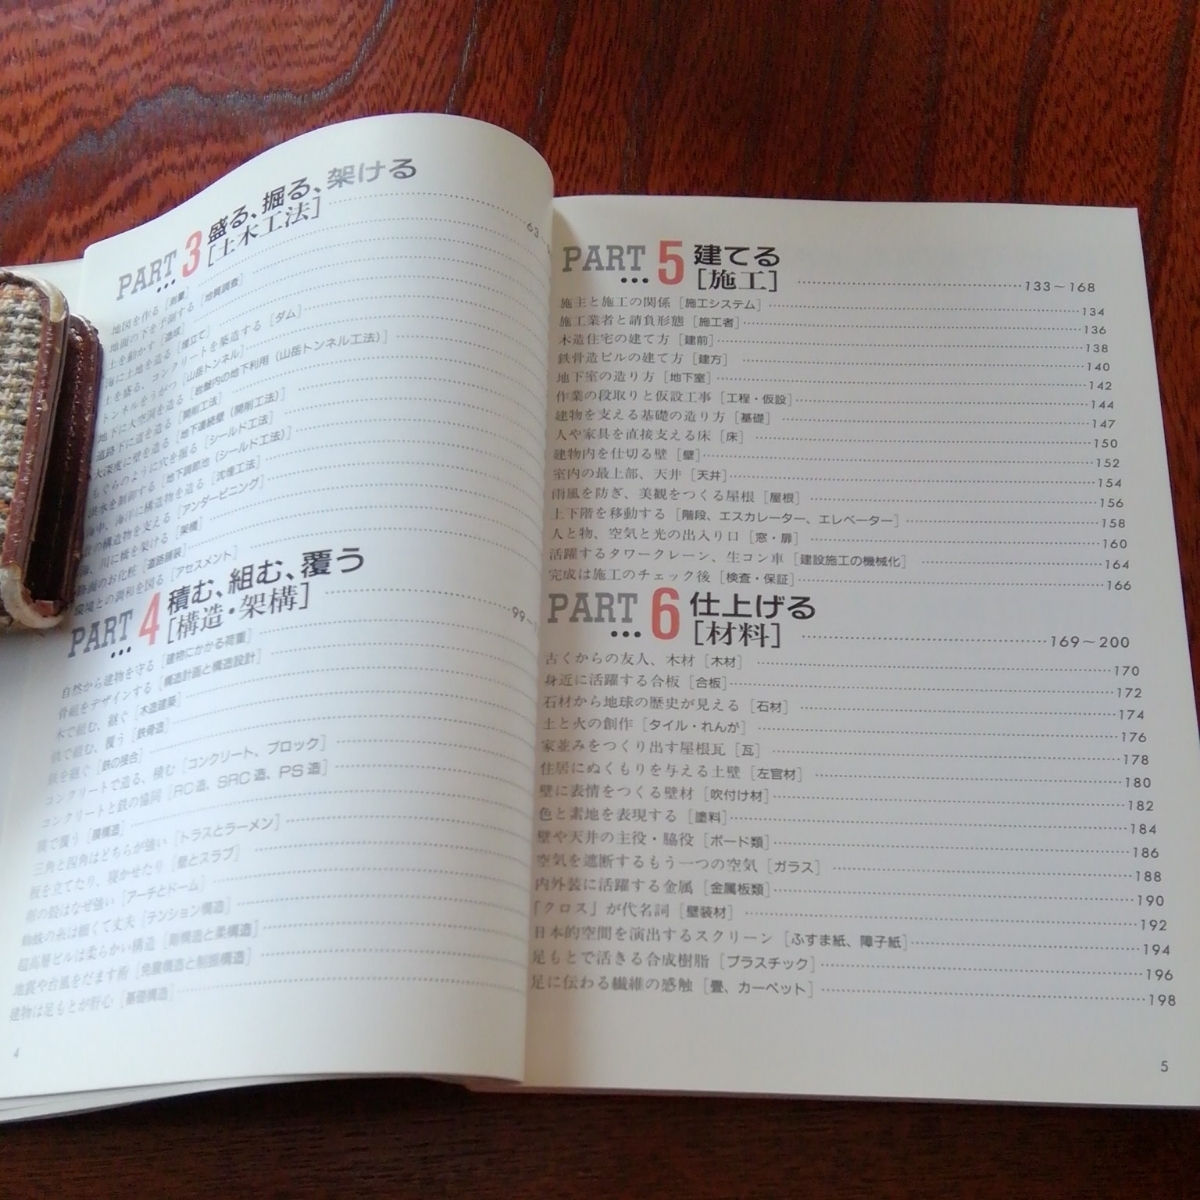 PART 3 盛る、掘る、架ける
[土木工法] 63~
地図を作る [測量]
地面の下を予測する [地質調査]
土を動かす [造成]
海に土地を造る [埋立て]
土を盛る、コンクリートを築造する [ダム]
トンネルをうがつ [山岳トンネル]
地下に大空洞を造る [岩盤内の地下利用(山岳トンネル工法)]
道路下に道を造る [開削工法]
大深度に壁を造る [地下連続壁(開削工法)]
もぐらのように穴を掘る [シールド工法]
洪水を制御する [地下調節池(シールド工法)]
海中、海洋に構造物を造る [沈埋工法]
の構造物を支える [アンダーピニング]
海、川に橋を架ける [架橋]
路面のお化粧 [道路舗装]
環境との調和を図る [アセスメント]
PART 4 積む、組む、覆う
[構造・架構] 99~
自然から建物を守る [建物にかかる荷重]
骨組をデザインする [構造計画と構造設計]
木で組む、継ぐ [木造建築]
鉄で組む、覆う [鉄骨造]
鉄を継ぐ [鉄の接合]
コンクリートで造る、積む [コンクリート、ブロック]
コンクリートと鉄の協同 [RC造、SRC造、PS造]
膜で覆う [膜構造]
三角と四角はどちらが強い [トラスとラーメン]
板を立てたり、寝かせたり [壁とスラブ]
卵の殻はなぜ強い [アーチとドーム]
蜘蛛の糸は細くて丈夫 [テンション構造]
超高層ビルは柔らかい構造 [剛構造と柔構造]
地震や台風をだます術 [免震構造と制振構造]
建物は足もとが肝心 [基礎構造]
4
PART 5 建てる
[施工] 133~168
施主と施工の関係 [施工システム] 134
施工業者と請負形態 [施工者] 136
木造住宅の建て方 [建前] 138
鉄骨造ビルの建て方 [建方] 140
地下室の造り方 [地下室] 142
作業の段取りと仮設工事 [工程・仮設] 144
建物を支える基礎の造り方 [基礎] 147
人や家具を直接支える床 [床] 150
建物内を仕切る壁 [壁] 152
室内の最上部、天井 [天井] 154
雨風を防ぎ、美観をつくる屋根 [屋根] 156
上下階を移動する [階段、エスカレーター、エレベーター] 158
人と物、空気と光の出入り口 [窓・扉] 160
活躍するタワークレーン、生コン車 [建設施工の機械化] 164
完成は施工のチェック後 [検査・保証] 166
PART 6 仕上げる
[材料] 169~200
古くからの友人、木材 [木材] 170
身近に活躍する合板 [合板] 172
石材から地球の歴史が見える [石材] 174
土と火の創作 [タイル・れんが] 176
家並みをつくり出す屋根瓦 [瓦] 178
住居にぬくもりを与える土壁 [左官材] 180
壁に表情をつくる壁材 [吹付け材] 182
色と素地を表現する [塗料] 184
壁や天井の主役・脇役 [ボード類] 186
空気を遮断するもう一つの空気 [ガラス] 188
内外装に活躍する金属 [金属板類] 190
「クロス」が代名詞 [壁装材] 192
日本的空間を演出するスクリーン [ふすま紙、障子紙] 194
足もとで活きる合成樹脂 [プラスチック] 196
足に伝わる繊維の感触 [畳、カーペット] 198
5